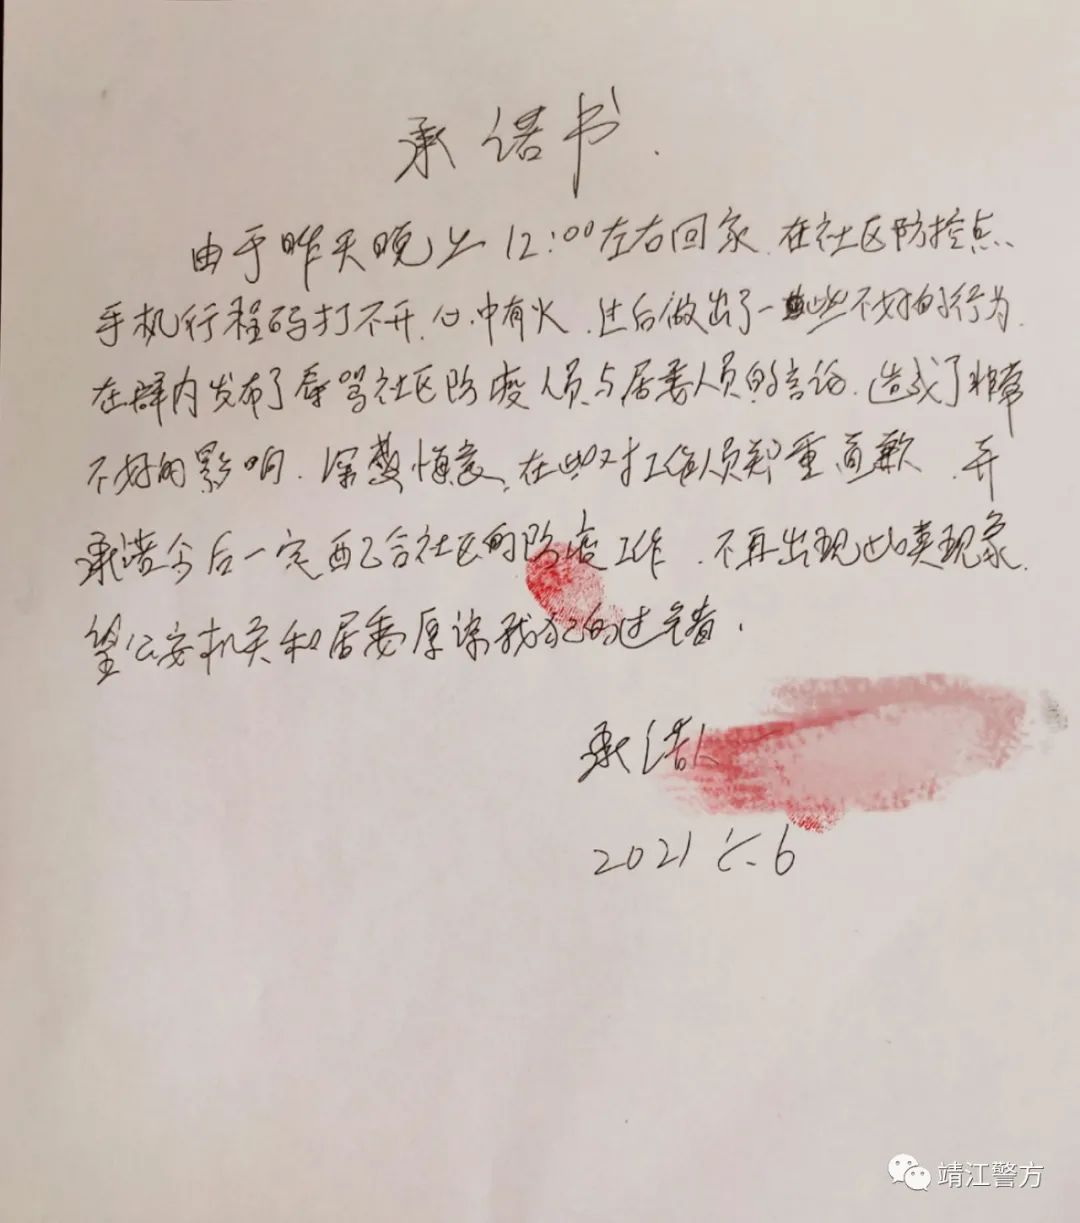 承诺书.
由于昨天晚上12:00左右回家.在社区防控点、
手机行程码打不开.心中有火.过后做出了一些不好的行为.
在群内发布了辱骂社区防疫人员与居委人员的言论.造成了非常
不好的影响.深感悔意.在此对工作人员郑重道歉.并
承诺今后一定配合社区的防疫工作.不再出现此类现象.
望公安机关和居委原谅我犯的过错.
承诺人
2021 6.
靖江警方